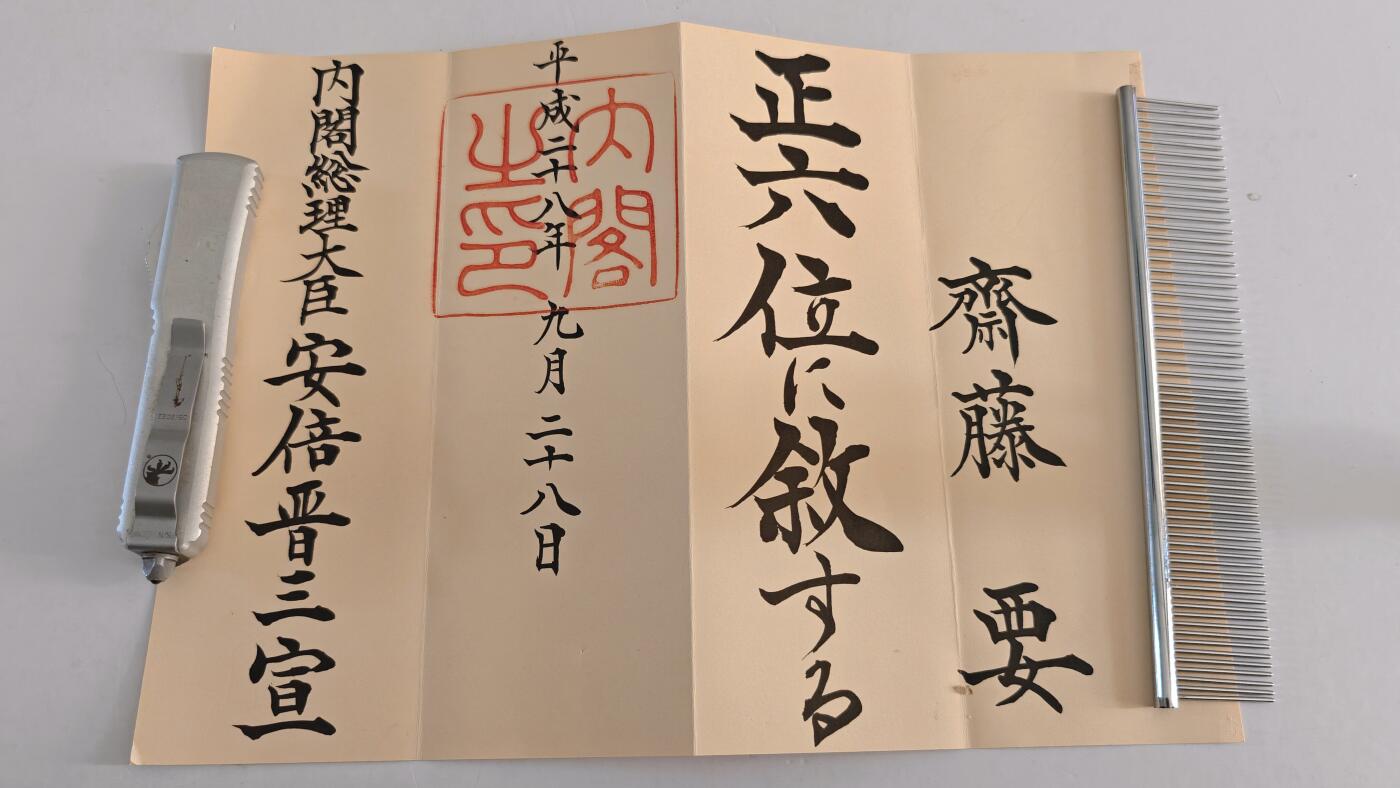 齋藤 要
正六位に敘する
平成二十八年 九月二十八日
内閣之印
内閣総理大臣安倍晋三宣